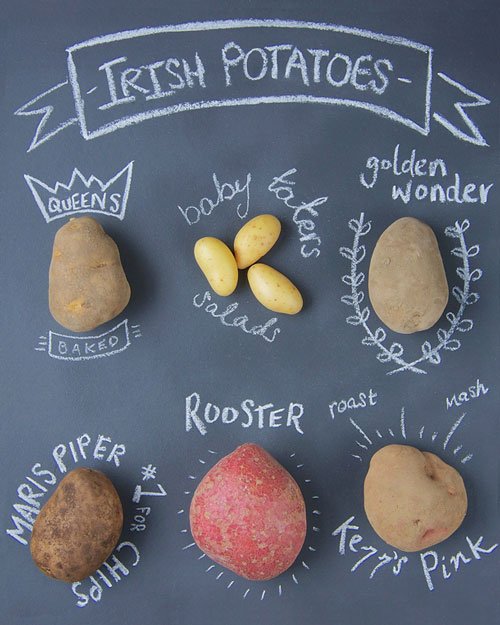 -IRISH POTATOES-
QUEENS
BAKED
baby taters
salads
golden
wonder
MARIS PIPER
#1
FOR
CHIPS
ROOSTER
roast
Mash
Kerr's Pink